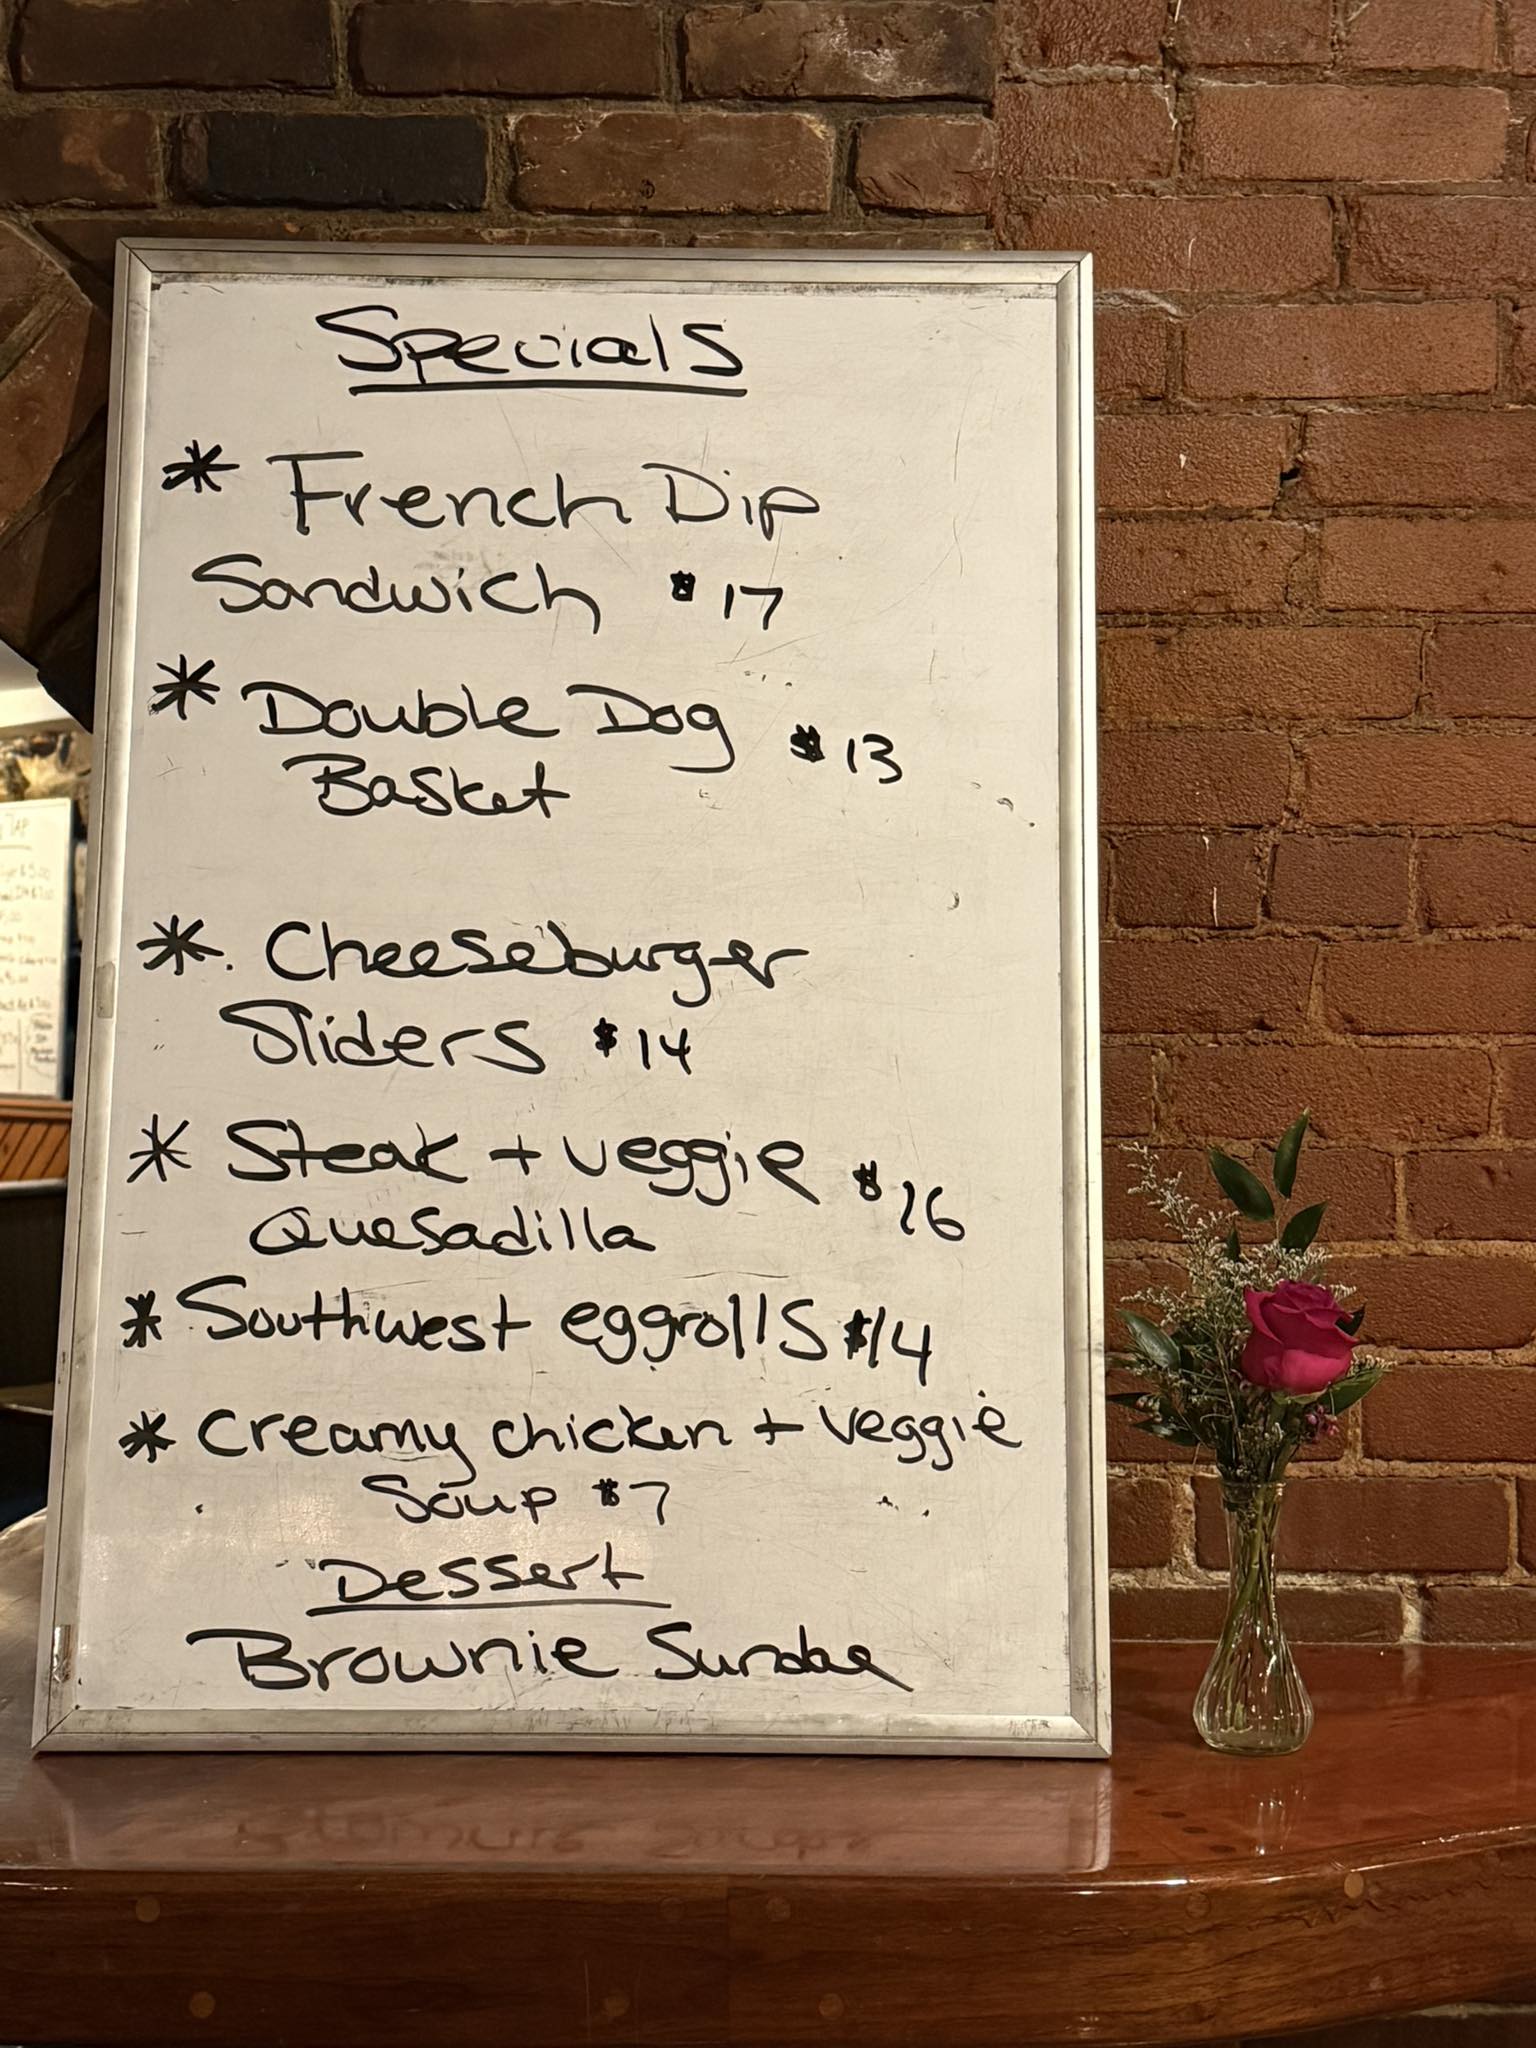 Specials
* French Dip
Sandwich $17
* Double Dog $13
Basket
* Cheeseburger
Sliders $14
* Steak + veggie $16
Quesadilla
* Southwest eggrolls $14
* Creamy chicken + veggie
Soup $7
Dessert
Brownie Sundae